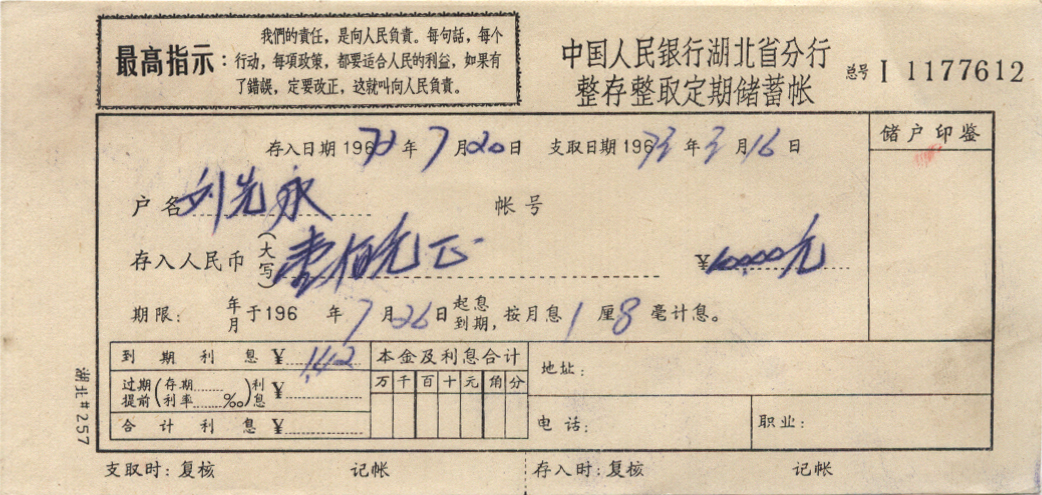 最高指示：
我們的責任，是向人民負責。每句話，每个
行动，每項政策，都要适合人民的利益，如果有
了錯誤，定要改正，这就叫向人民負責。
中国人民银行湖北省分行
整存整取定期储蓄帐
总号 I 1177612
存入日期 196 年 7 月 20 日 支取日期 196 年 3 月 16 日
储户印鉴
户名 刘先永 帐号
存入人民币（大写）壹佰元正 ¥100.00元
期限： 年月 于196 年 7 月 26 日 起息到期，按月息 1 厘 8 毫计息。
到期利息 ¥ 1.42
过期提前（存期 利率 ‰）利息 ¥
合计利息 ¥
本金及利息合计
万 千 百 十 元 角 分
地址：
电话： 职业：
湖北#257
支取时：复核 记帐 存入时：复核 记帐